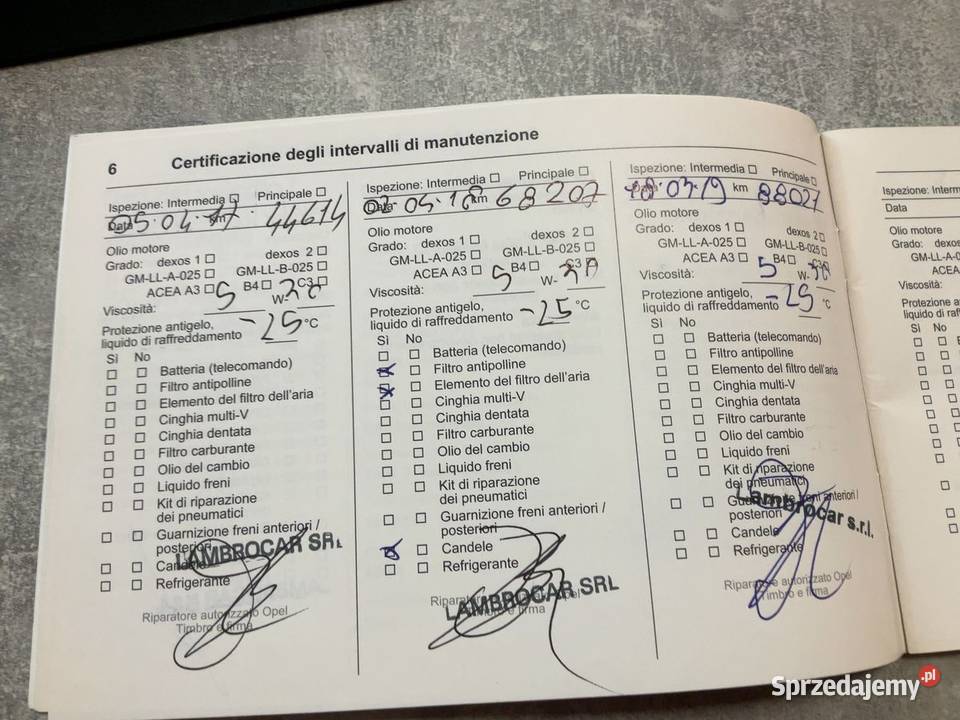 6
Certificazione degli intervalli di manutenzione
Ispezione: Intermedia Principale
Data 05.04.17 km 44614
Olio motore
Grado: dexos 1 dexos 2
GM-LL-A-025 GM-LL-B-025
ACEA A3 B4 C3
Viscosità: 5 W- 30
Protezione antigelo,
liquido di raffreddamento -25 °C
Sì No
Batteria (telecomando)
Filtro antipolline
Elemento del filtro dell'aria
Cinghia multi-V
Cinghia dentata
Filtro carburante
Olio del cambio
Liquido freni
Kit di riparazione
dei pneumatici
Guarnizione freni anteriori /
posteriori
Candele
Refrigerante
LAMBROCAR SRL
Riparatore autorizzato Opel
Timbro e firma
Ispezione: Intermedia Principale
Data 04.18 km 68207
Olio motore
Grado: dexos 1 dexos 2
GM-LL-A-025 GM-LL-B-025
ACEA A3 B4 C3
Viscosità: 5 W- 30
Protezione antigelo,
liquido di raffreddamento -25 °C
Sì No
Batteria (telecomando)
Filtro antipolline
Elemento del filtro dell'aria
Cinghia multi-V
Cinghia dentata
Filtro carburante
Olio del cambio
Liquido freni
Kit di riparazione
dei pneumatici
Guarnizione freni anteriori /
posteriori
Candele
Refrigerante
Riparatore autorizzato Opel
Timbro e firma
LAMBROCAR SRL
Ispezione: Intermedia Principale
Data 18.03.19 km 88021
Olio motore
Grado: dexos 1 dexos 2
GM-LL-A-025 GM-LL-B-025
ACEA A3 B4 C3
Viscosità: 5 W- 30
Protezione antigelo,
liquido di raffreddamento -25 °C
Sì No
Batteria (telecomando)
Filtro antipolline
Elemento del filtro dell'aria
Cinghia multi-V
Cinghia dentata
Filtro carburante
Olio del cambio
Liquido freni
Kit di riparazione
dei pneumatici
Guarnizione freni anteriori /
posteriori
Lambrocar s.r.l.
Candele
Refrigerante
Riparatore autorizzato Opel
Timbro e firma
Ispezione: Interm
Data
Olio motore
Grado: dexos
GM-LL-A-0
ACEA
Viscosità:
Protezione an
liquido di raf
Sì No
Sprzedajemy.pl